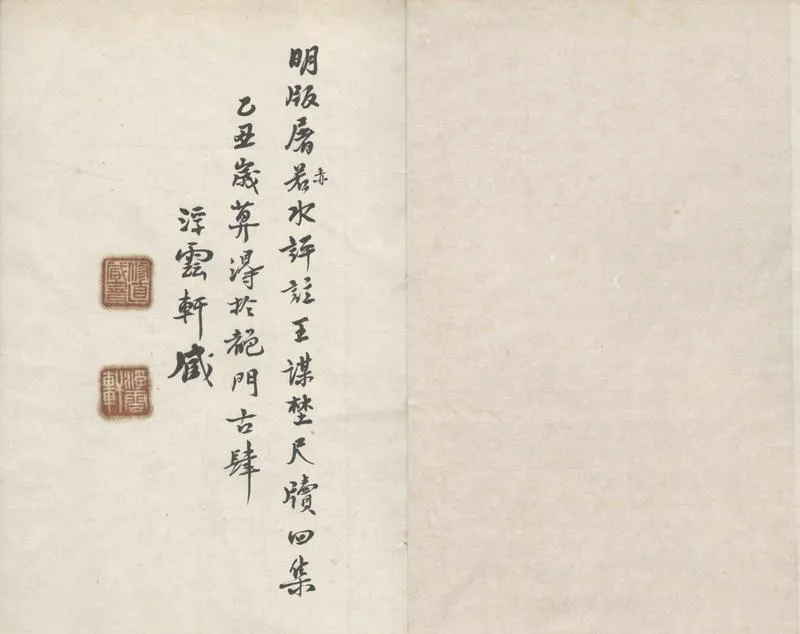 明版屠若水評註王謀埜尺牘四集
赤
乙丑歲莫得於門古肆
浮雲軒藏
藏書
浮雲軒